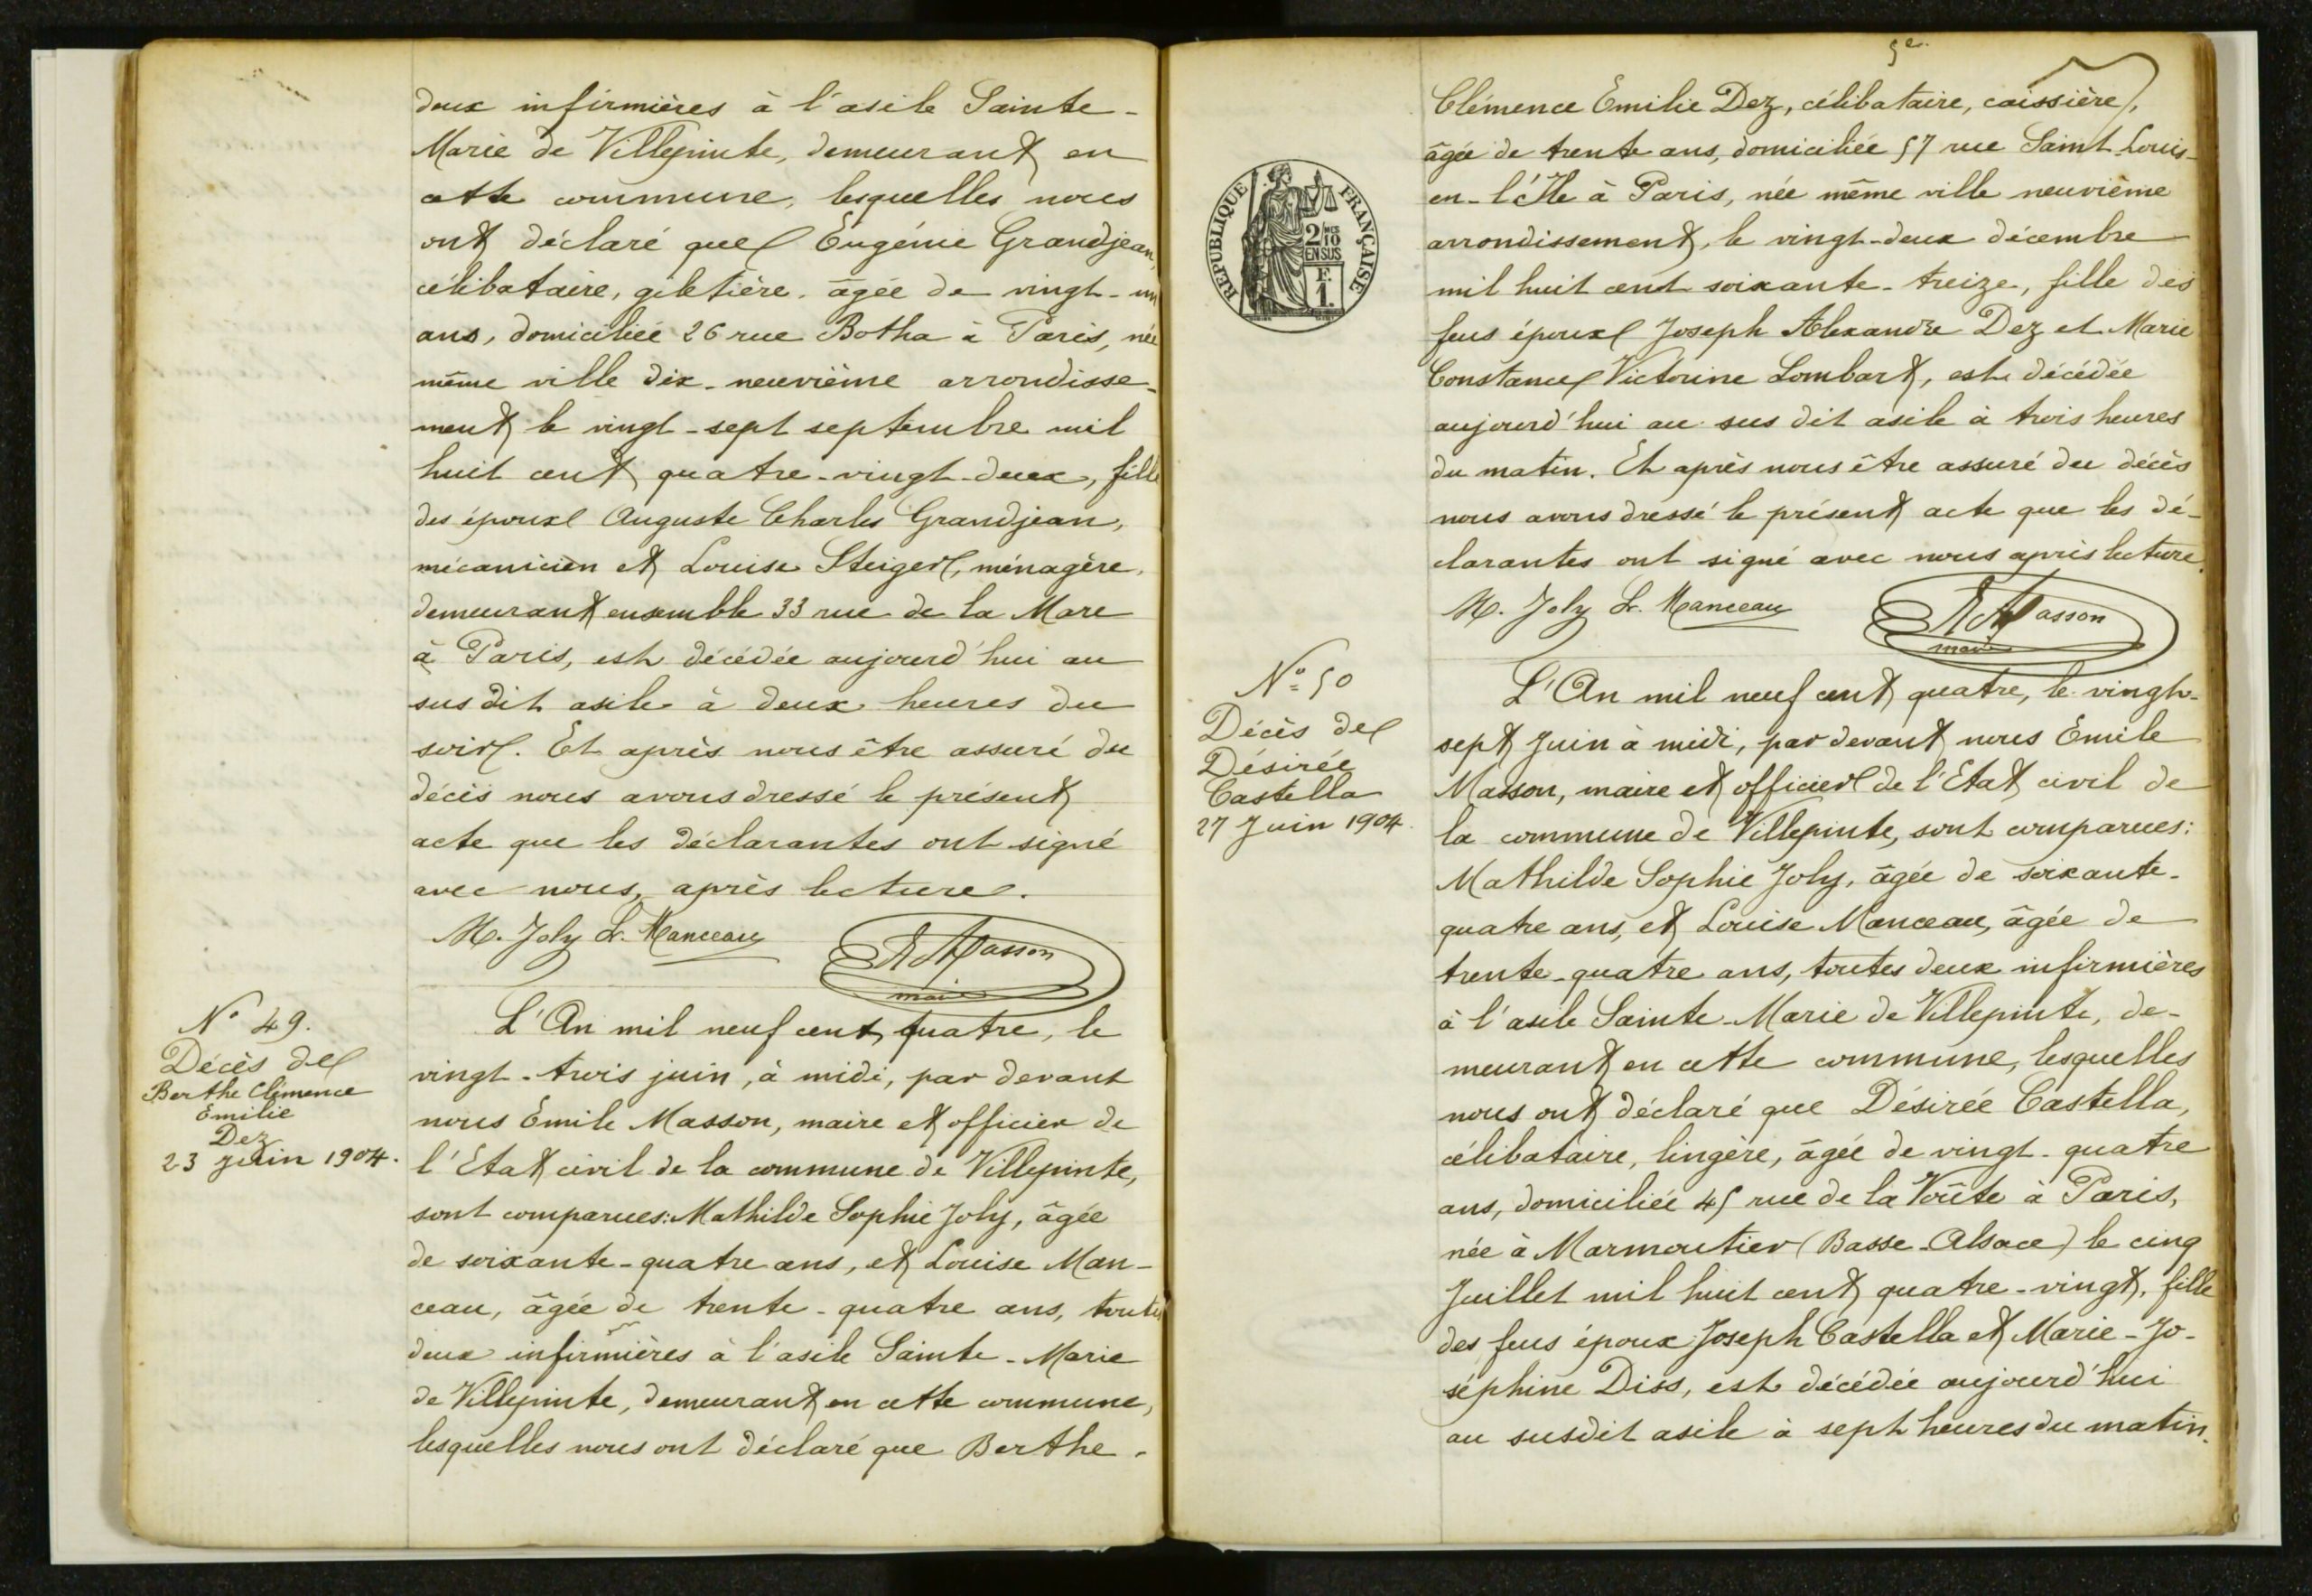 deux infirmières à l'asile Sainte-
Marie de Villepinte, demeurant en
cette commune, lesquelles nous
ont déclaré que Eugénie Grandjean,
célibataire, giletière, âgée de vingt-un
ans, domiciliée 26 rue Botha à Paris, née
même ville dix-neuvième arrondisse-
ment le vingt-sept septembre mil
huit cent quatre-vingt-deux, fille
des époux Auguste Charles Grandjean,
mécanicien et Louise Steiger, ménagère,
demeurant ensemble 33 rue de la Mare
à Paris, est décédée aujourd'hui au
sus dit asile à deux heures du
soir. Et après nous être assuré du
décès nous avons dressé le présent
acte que les déclarantes ont signé
avec nous, après lecture.
M. Joly L. Manceau E Masson
maire
N° 49.
Décès de
Berthe Clémence
Emilie
Dez
23 juin 1904.
L'An mil neuf cent quatre, le
vingt-trois juin, à midi, par devant
nous Emile Masson, maire et officier de
l'Etat civil de la commune de Villepinte,
sont comparues: Mathilde Sophie Joly, âgée
de soixante-quatre ans, et Louise Man-
ceau, âgée de trente-quatre ans, toutes
deux infirmières à l'asile Sainte-Marie
de Villepinte, demeurant en cette commune,
lesquelles nous ont déclaré que Berthe
5e
Clémence Emilie Dez, célibataire, caissière,
âgée de trente ans, domiciliée 57 rue Saint-Louis-
en-l'Ile à Paris, née même ville neuvième
arrondissement, le vingt-deux décembre
mil huit cent soixante-treize, fille des
feus époux Joseph Alexandre Dez et Marie
Constance Victorine Lombart, est décédée
aujourd'hui au sus dit asile à trois heures
du matin. Et après nous être assuré du décès
nous avons dressé le présent acte que les dé-
clarantes ont signé avec nous après lecture.
M. Joly L. Manceau E Masson
maire
REPUBLIQUE FRANÇAISE
2/10
EN SUS
F.
1.
N° 50
Décès de
Désirée
Castella
27 Juin 1904.
L'An mil neuf cent quatre, le vingt-
sept Juin à midi, par devant nous Emile
Masson, maire et officier de l'Etat civil de
la commune de Villepinte, sont comparues:
Mathilde Sophie Joly, âgée de soixante-
quatre ans, et Louise Manceau, âgée de
trente-quatre ans, toutes deux infirmières
à l'asile Sainte-Marie de Villepinte, de-
meurant en cette commune, lesquelles
nous ont déclaré que Désirée Castella,
célibataire, lingère, âgée de vingt-quatre
ans, domiciliée 45 rue de la Voûte à Paris,
née à Marmoutier (Basse-Alsace) le cinq
Juillet mil huit cent quatre-vingt, fille
des feus époux Joseph Castella et Marie-Jo-
séphine Diss, est décédée aujourd'hui
au susdit asile à sept heures du matin.